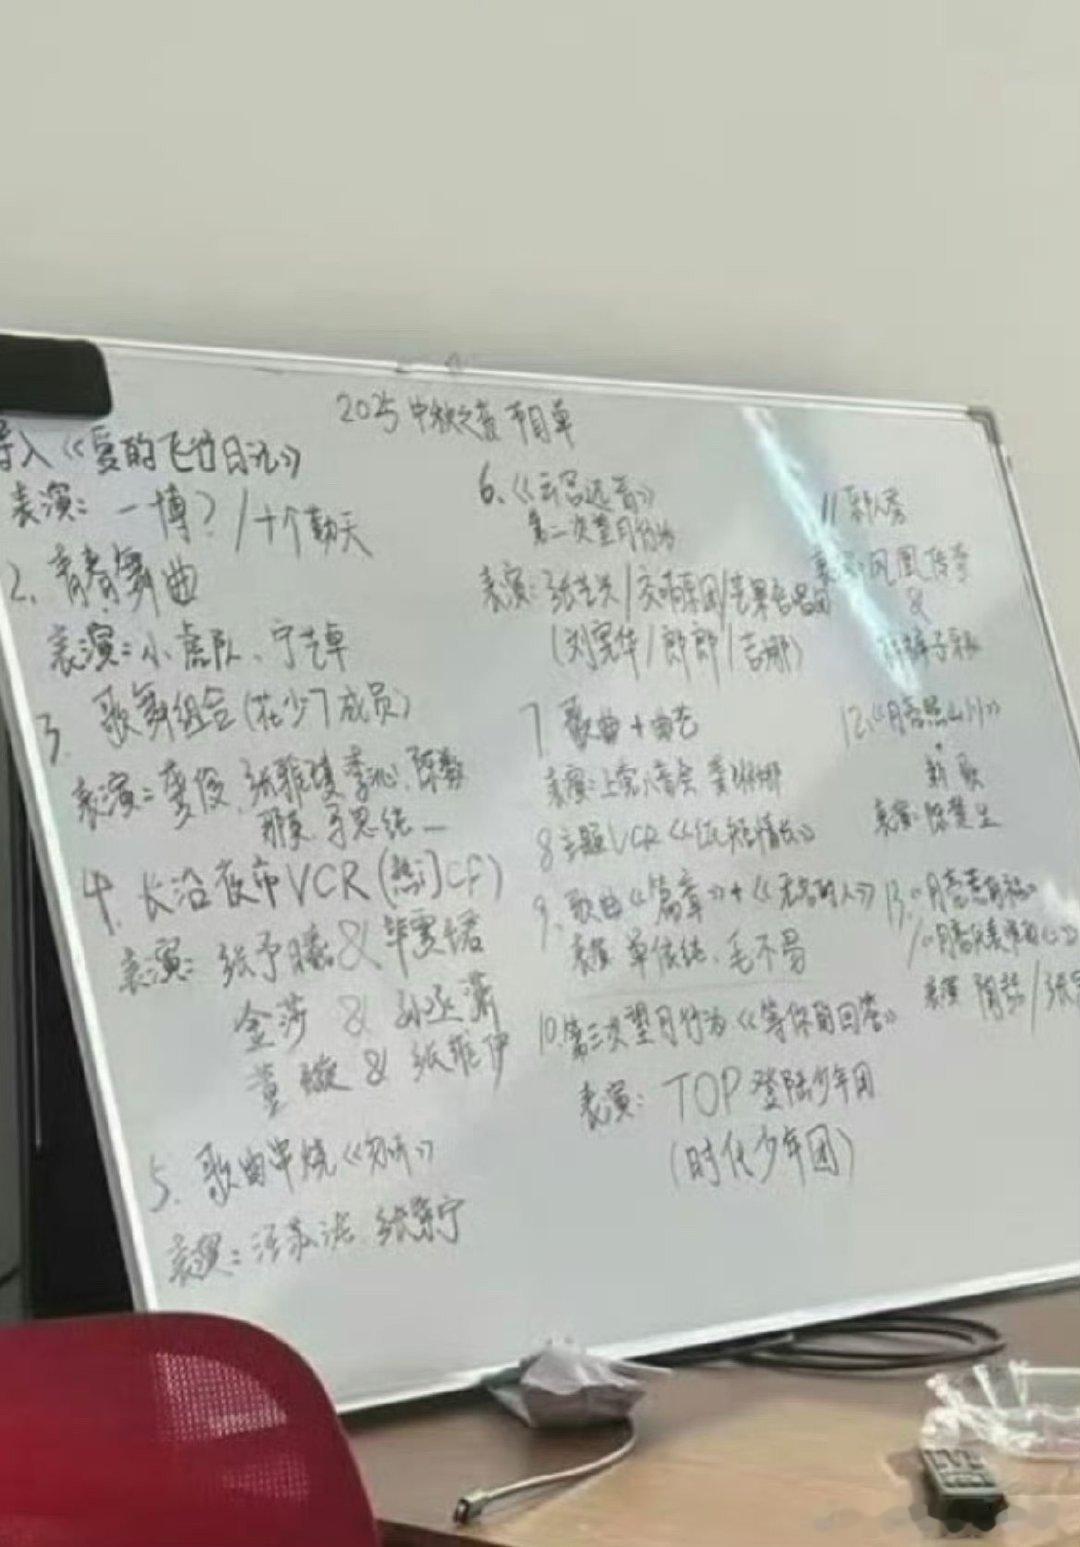 2025中秋之夜节目单
导入《爱的飞行日记》
表演：一博？/十个勤天
2. 青春舞曲
表演：小虎队、宁艺卓
3. 歌舞组合（花少7成员）
表演：龚俊、张雅琪、李沁、陈数
那英 马思纯
4. 长沙夜市VCR（热门CP）
表演：张予曦&毕雯珺
金莎 & 孙丞潇
董璇 & 张维伊
5. 歌曲串烧《》
表演：汪苏泷 张紫宁
6.《云宫迅音》
第二次望月行为
表演：张艺兴/交响乐团/苹果合唱团
（刘宪华/郎郎/吉娜）
7. 歌曲+曲艺
表演：上党八音会 龚琳娜
8 主题VCR《纸短情长》
9. 歌曲《篇章》+《无名的人》
表演 单依纯、毛不易
10. 第三次望月行为《等你的回答》
表演：TOP登陆少年团
（时代少年团）
11
表演：凤凰传奇
&
12.《月亮照山川》
新歌
表演：陈楚生
13.
表演